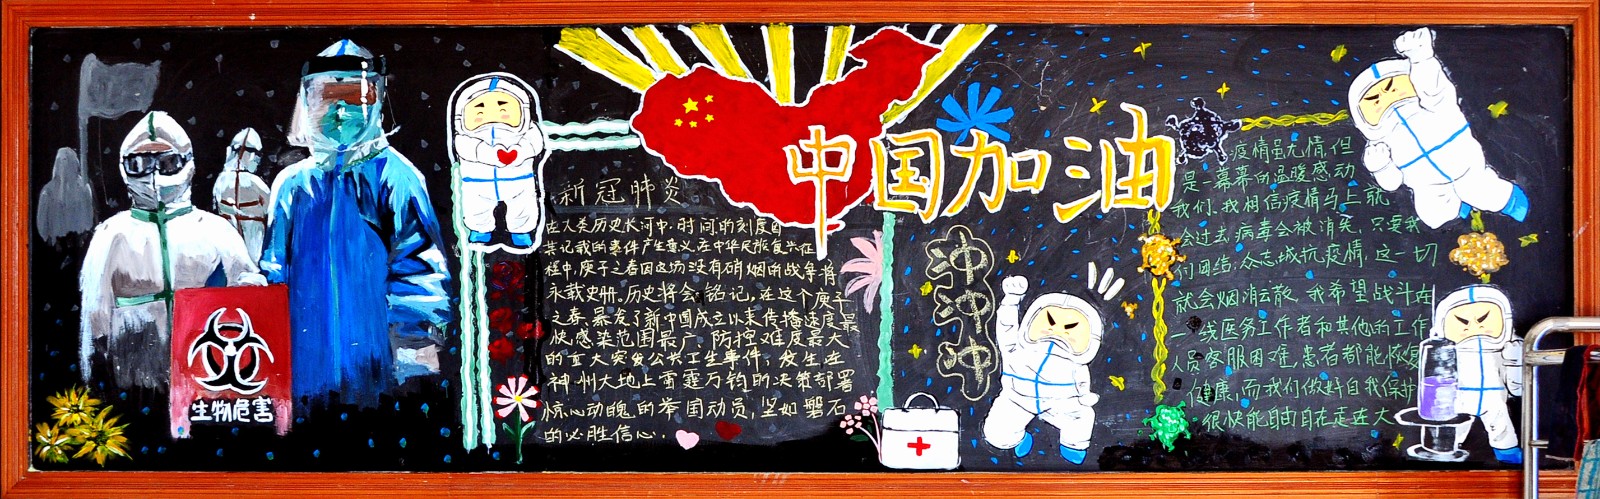 中国加油
生物危害
新冠肺炎
在人类历史长河中,时间的刻度因
其记载的事件产生意义,在中华民族复兴征
程中,庚子之春因这场没有硝烟的战争将
永载史册。历史将会铭记,在这个庚子
之春,暴发了新中国成立以来传播速度最
快,感染范围最广,防控难度最大
的重大突发公共卫生事件,发生在
神州大地上雷霆万钧的决策部署
惊心动魄的举国动员,坚如磐石
的必胜信心.
冲
冲
冲
疫情虽无情,但
是一幕幕的温暖感动
我们、我相信疫情马上就
会过去,病毒会被消灭,只要我
们团结,众志城抗疫情,这一切
就会烟消云散,我希望战斗在
一线医务工作者和其他的工作
人员客服困难,患者都能恢复
健康,而我们做好自我保护
很快能自由自在走在大